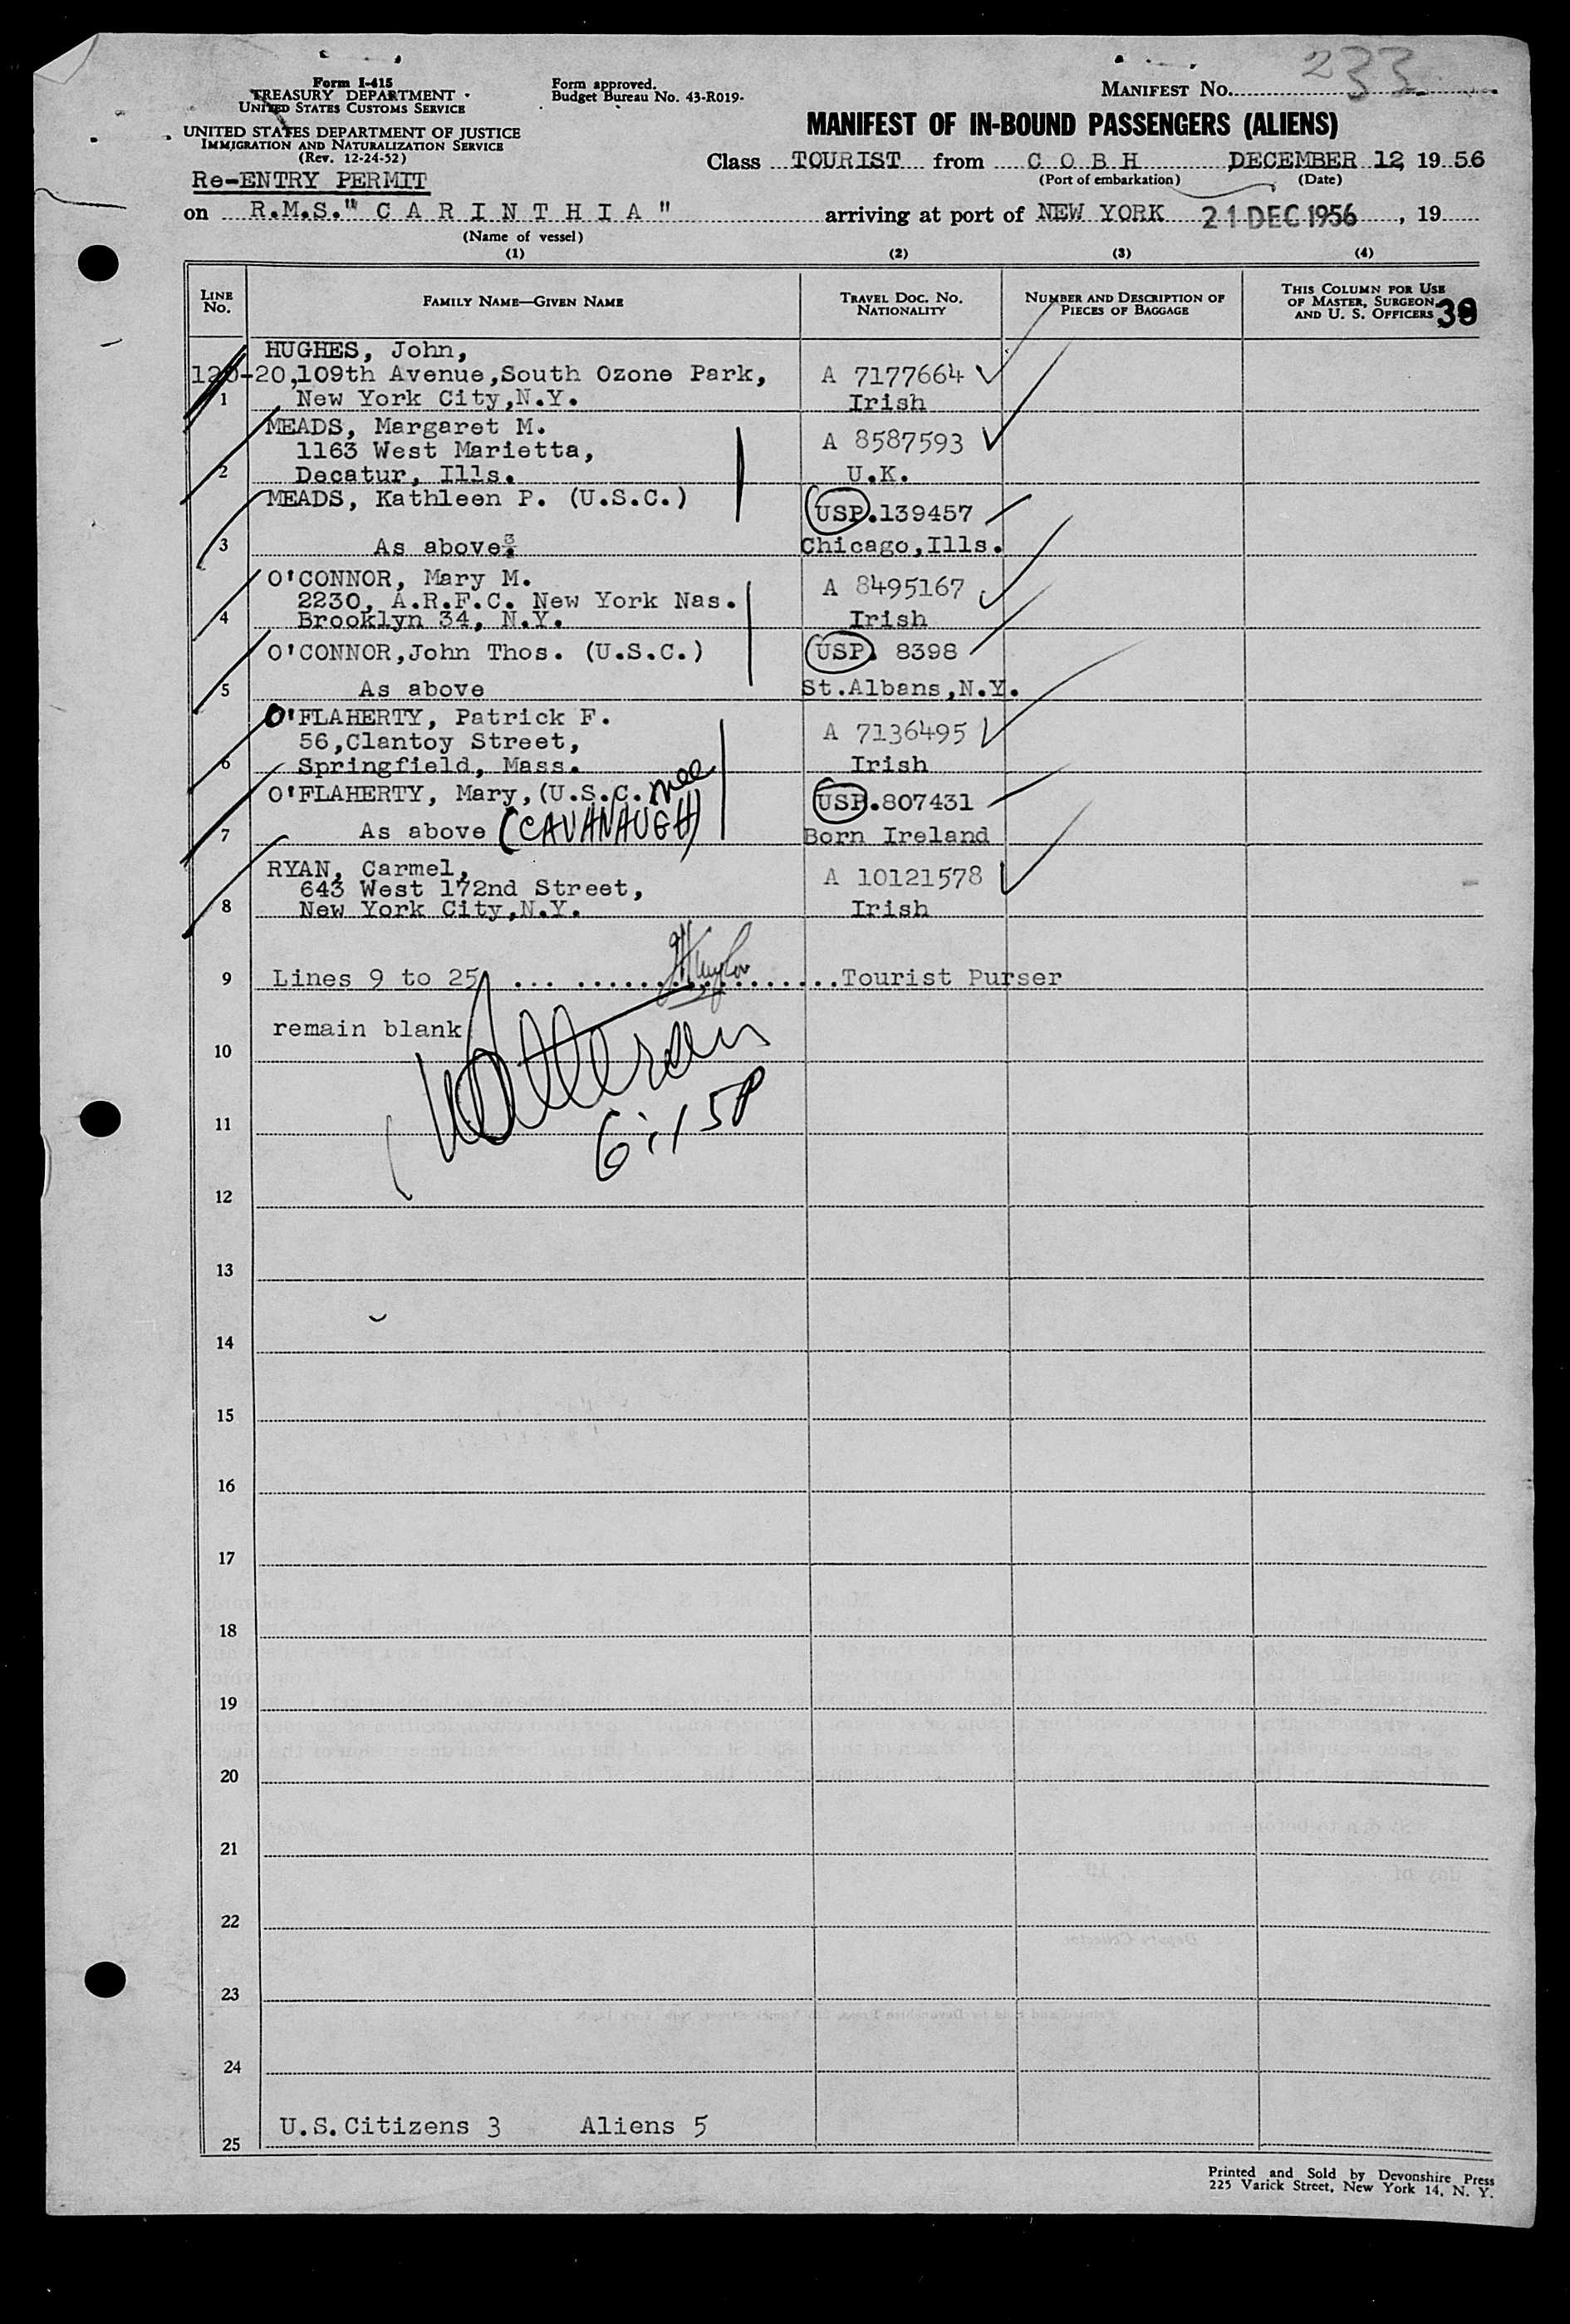 233
Form I-415
TREASURY DEPARTMENT
UNITED STATES CUSTOMS SERVICE
Form approved.
Budget Bureau No. 43-R019-
MANIFEST No.
UNITED STATES DEPARTMENT OF JUSTICE
IMMIGRATION AND NATURALIZATION SERVICE
(Rev. 12-24-52)
MANIFEST OF IN-BOUND PASSENGERS (ALIENS)
Class TOURIST from C O B H DECEMBER 12, 19 56
(Port of embarkation) (Date)
Re-ENTRY PERMIT
on R.M.S." C A R I N T H I A " arriving at port of NEW YORK 21 DEC 1956, 19
(Name of vessel)
(1) (2) (3) (4)
LINE No. FAMILY NAME—GIVEN NAME TRAVEL DOC. NO. NATIONALITY NUMBER AND DESCRIPTION OF PIECES OF BAGGAGE THIS COLUMN FOR USE OF MASTER, SURGEON, AND U. S. OFFICERS 38
HUGHES, John,
120-20,109th Avenue,South Ozone Park, A 7177664
1 New York City,N.Y. Irish
MEADS, Margaret M.
1163 West Marietta, A 8587593
2 Decatur, Ills. U.K.
MEADS, Kathleen P. (U.S.C.) USP.139457
3 As above. Chicago,Ills.
O'CONNOR, Mary M. A 8495167
2230, A.R.F.C. New York Nas.
4 Brooklyn 34, N.Y. Irish
O'CONNOR,John Thos. (U.S.C.) USP. 8398
5 As above St.Albans,N.Y.
O'FLAHERTY, Patrick F.
56,Clantoy Street, A 7136495
6 Springfield, Mass. Irish
O'FLAHERTY, Mary, (U.S.C. nee USP.807431
7 As above (CAVANAUGH) Born Ireland
RYAN, Carmel, A 10121578
643 West 172nd Street,
8 New York City,N.Y. Irish
9 Lines 9 to 25 ... ................Tourist Purser
remain blank
10
11
6:15P
12
13
14
15
16
17
18
19
20
21
22
23
24
U.S.Citizens 3 Aliens 5
25
Printed and Sold by Devonshire Press
225 Varick Street, New York 14, N. Y.